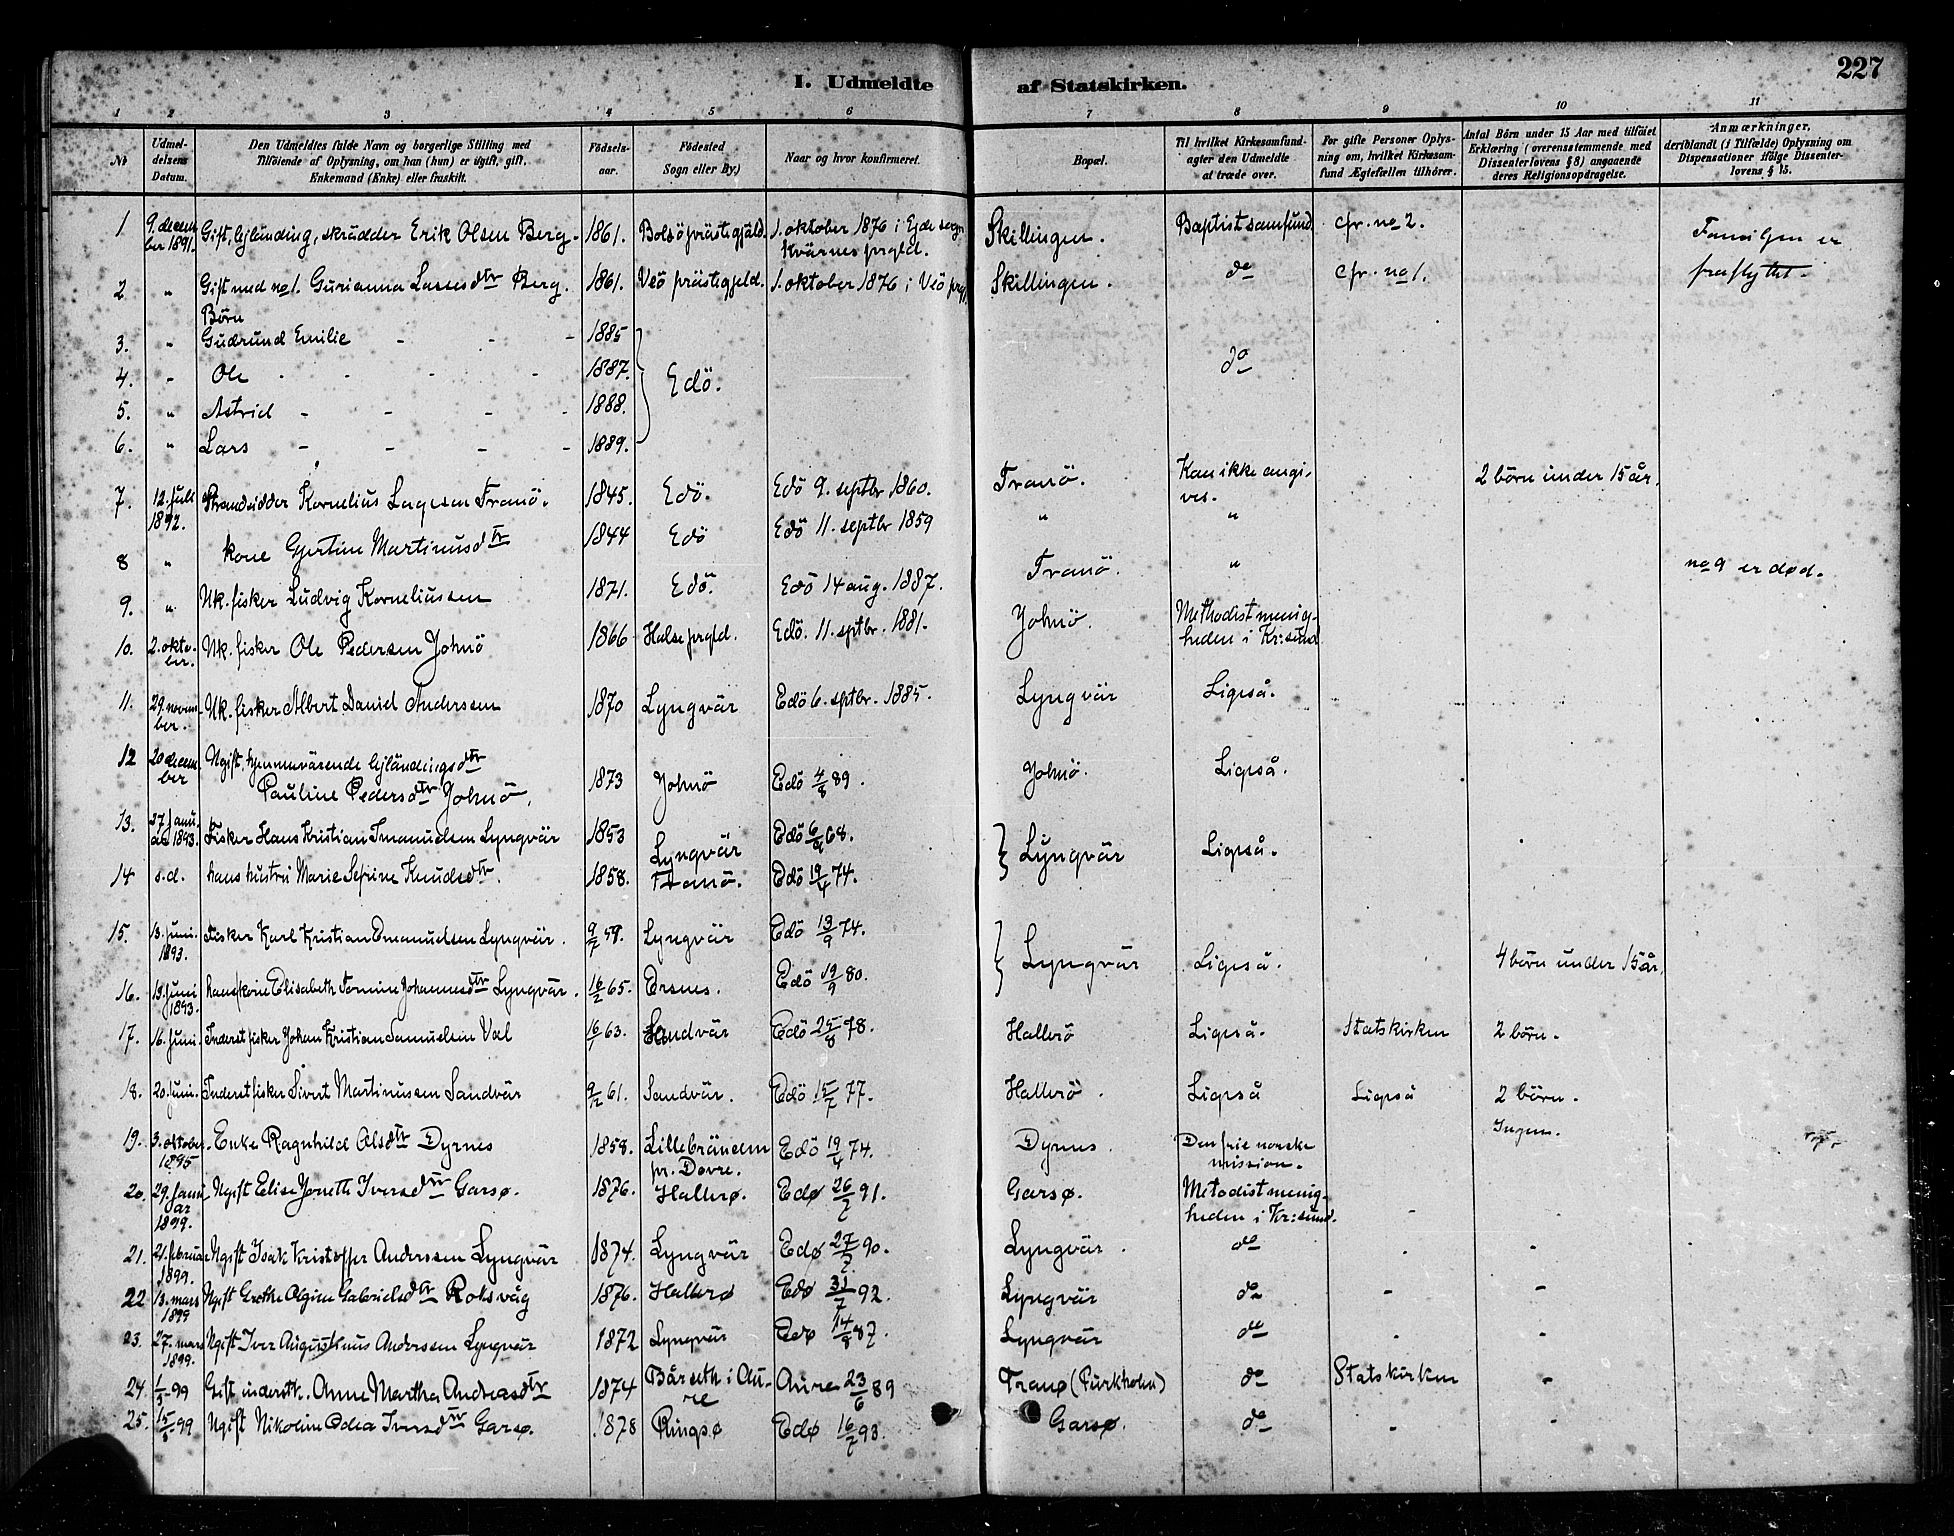 I. Udmeldte af Statskirken. 227
1 2 3 4 5 6 7 8 9 10 11
No
Udmeldelsens Datum.
Den Udmeldtes fulde Navn og borgerlige Stilling med Tilføiende af Oplysning, om han (hun) er ugift, gift, Enkemand (Enke) eller fraskilt.
Fødselsaar.
Fødested Sogn eller By.)
Naar og hvor konfirmeret.
Bopæl.
Til hvilket Kirkesamfund agter den Udmeldte at træde over.
For gifte Personer Oplysning om, hvilket Kirkesamfund Ægtefællen tilhører.
Antal Børn under 15 Aar med tilføiet Erklæring (overensstemmende med Dissenterlovens § 8) angaaende deres Religionsopdragelse.
Anmærkninger, deriblandt (i Tilfælde) Oplysning om Dispensationer ifølge Dissenterlovens § 15.
1 9. december 1891. Gift, lejländing, skrädder Erik Olsen Berg. 1861. Bolsö prästegjäld. 1. oktober 1876 i Ejde sogn Kvärnes prgld. Skillingen. Baptistsamfund. cfr. no 2. Familjen er
2 " Gift med no 1. Gurianna Lassesdtr Berg. 1861. Veö prästegjeld. 1. oktober 1876 i Veö prgl. Skillingen. do cfr. no 1. fraflyttet.
Børn
3. " Gudrund Emilie - - - 1885
4. " Ole - - - 1887. Edö. do
5. " Astrid - - - 1888.
6. " Lars - - - 1889.
7. 12. juli 1892. Strandsidder Kornelius Lagesen Tranö. 1845. Edö. Edö 9. septbr 1860. Tranö. Kan ikke angives. 2 börn under 15 år.
8 " Kone Gjertine Martinusdtr 1844 Edö Edö 11. septbr 1859 " "
9. " Uk. fisker Ludvig Korneliussen 1871. Edö. Edö 14 aug. 1887. Tranö. " no 9 er død.
10. 2. oktober. Uk. fisker Ole Pedersen Johnö 1866 Halse prgld. Edö. 11. sptbr. 1881. Johnö. Methodistmenigheden i Kr:sund
11. 29. november. Uk. fisker Albert Daniel Anderssen 1870 Lyngvär Edö 6. sptbr. 1885. Lyngvär Ligeså.
12 20 december Ugift, hjemmeværende lejländingsdtr
Pauline Pedersdtr Johnö. 1873 Johnö Edö 4/8 89. Johnö. Ligeså.
13. 27. januar 1893. Fisker Hans Kristian Imanuelsen Lyngvär 1853 Lyngvär Edö 6/9 68. Lyngvär Ligeså.
14 s.d. hans hustru Marie Sefrine Knudsdtr. 1858. Tranö. Edö 19/4 74.
15. 13. juni. 1893. Fisker Karl Kristian Emanuelsen Lyngvär. 9/7 59. Lyngvär Edö 13/9 74. Lyngvär Ligeså. 4 börn under 15 år.
16. 13. juni 1893. hans kone Elisabeth Johannesdtr Lyngvär. 16/2 65. Ersnes. Edö 19/9 80.
17. 16. juni. Inderst fisker Johan Kristian Samuelsen Val 16/1 63. Sandvär Edö 25/8 78. Hallerö Ligeså. Statskirken 2 börn.
18. 20. juni. Inderst fisker Sivert Martinussen Sandvär 9/12 61. Sandvär. Edö 15/7 77. Hallerö. Ligeså Ligeså 2 börn.
19. 3. oktober 1895 Enke Ragnhild Olsdtr Dyrnes 1858. Lillebränden pr. Dovre. Edö 19/4 74. Dyrnes. Den frie norske mission. Ingen.
20. 29. januar 1899. Ugift Elise Jonette Iversdtr Garsø. 1876. Hallerø. Edø 26/7 91. Garsø. Metodistmenigheden i Kr:sund. -
21. 21. februar 1899. Ugift Isak Kristoffer Anderssen Lyngvär 1874. Lyngvär Edø 27/7 90. Lyngvär. do - -
22 13. mars 1899 Ugift Grethe Olgine Gabrielsdtr Roksvåg 1876. Hallerø Edø 31/7 92. Lyngvär do - -
23. 27. mars 1899. Ugift Iver Augustinus Anderssen Lyngvär 1872 Lyngvär Edø 14/8 87. Lyngvär do - -
24. 1/5 99 Gift inderstk. Anne Martha Andreasdtr 1874 Bårseth i Aure Aure 23/6 89 Tranø (Purkholm) do Statskirken -
25. 15/8 99 Ugift Nikoline Odea Iversdtr Garsø. 1878 Ringsø Edø 16/7 93. Garsø. do - -